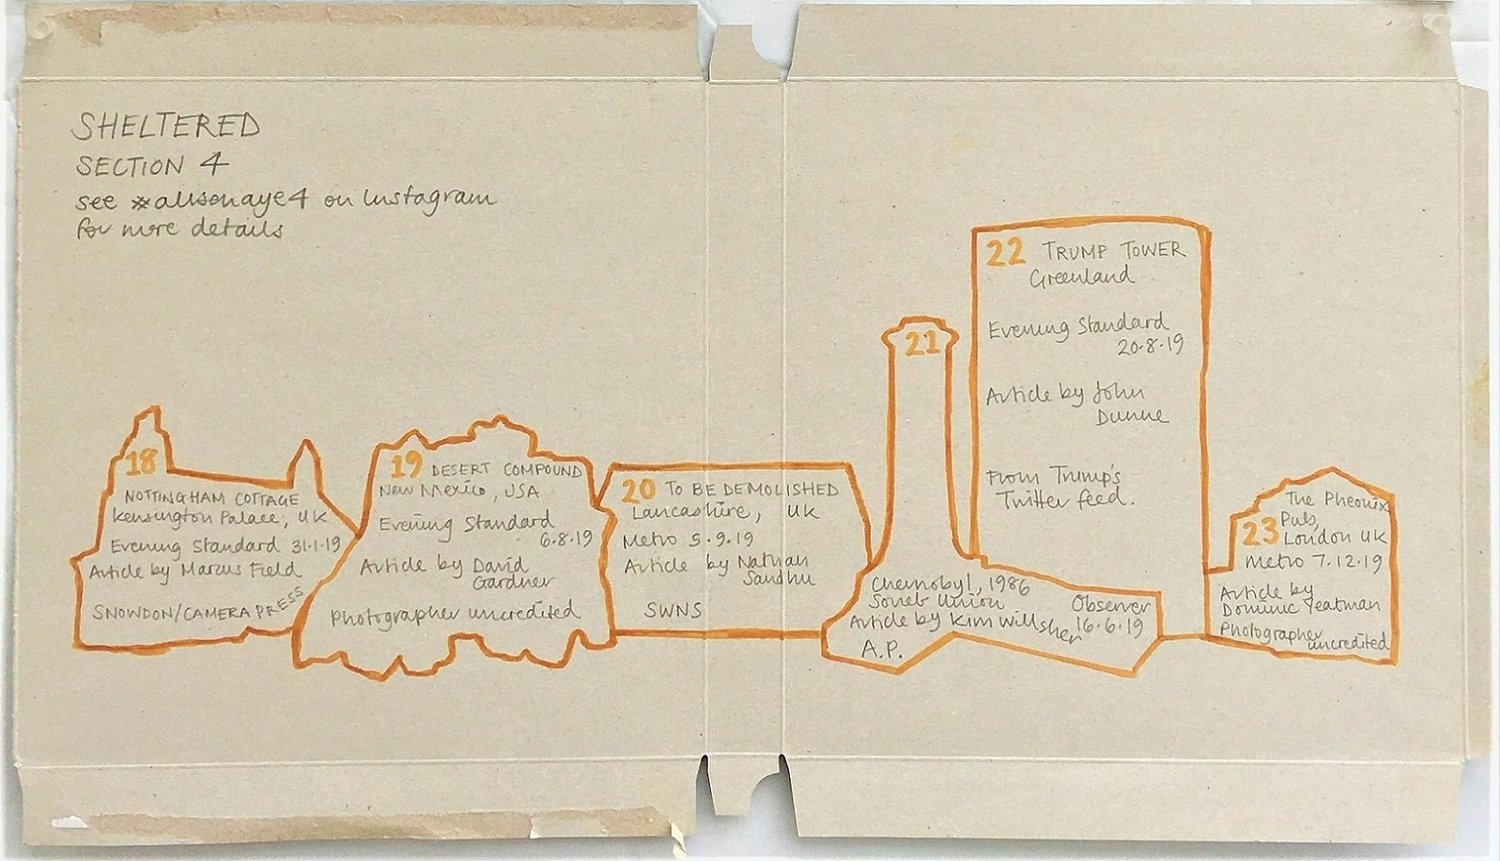 SHELTERED
SECTION 4
see #alisonaye4 on Instagram
for more details
18
NOTTINGHAM COTTAGE
Kensington Palace, UK
Evening Standard 31.1.19
Article by Marcus Field
SNOWDON/CAMERA PRESS
19 DESERT COMPOUND
New Mexico, USA
Evening Standard
6.8.19
Article by David
Gardner
Photographer uncredited
20 TO BE DEMOLISHED
Lancashire, UK
Metro 5.9.19
Article by Nathan
Sandhu
SWNS
21
Chernobyl, 1986
Soviet Union
Article by Kim Willsher
Observer
16.6.19
A.P.
22 TRUMP TOWER
Greenland
Evening Standard
20.8.19
Article by John
Dunne
From Trump's
Twitter feed.
23
The Pheonix
Pub,
London UK
Metro 7.12.19
Article by
Dominic Yeatman
Photographer
uncredited